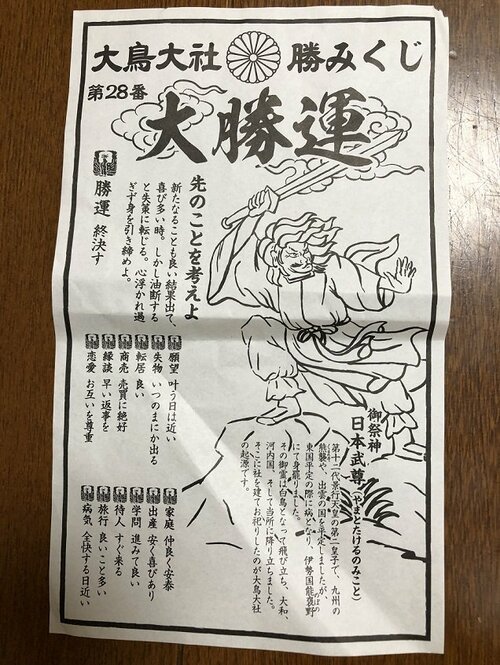 大鳥大社 勝みくじ
第28番
大勝運
先のことを考えよ
新たなることも良い結果出て、
喜び多い時。しかし油断する
と失策に転じる。心浮かれ過
ぎず身を引き締めよ。
勝運 終決す
願望 叶う日は近い
失物 いつのまにか出る
転居 良い
商売 売買に絶好
縁談 早い返事を
恋愛 お互いを尊重
家庭 仲良く安泰
出産 安く喜びあり
学問 進みて良い
待人 すぐ来る
旅行 良いこと多い
病気 全快する日近い
御祭神
日本武尊(やまとたけるのみこと)
第十二代景行天皇の第二皇子で、九州の
熊襲や、出雲の国を平定しましたが、
東国平定の際に病となり、伊勢国能褒野
のぼの
にて身罷りました。
その御霊は白鳥となって飛び立ち、大和、
河内国、そして当所に降り立ちました。
そこに社を建てお祀りしたのが大鳥大社
の起源です。